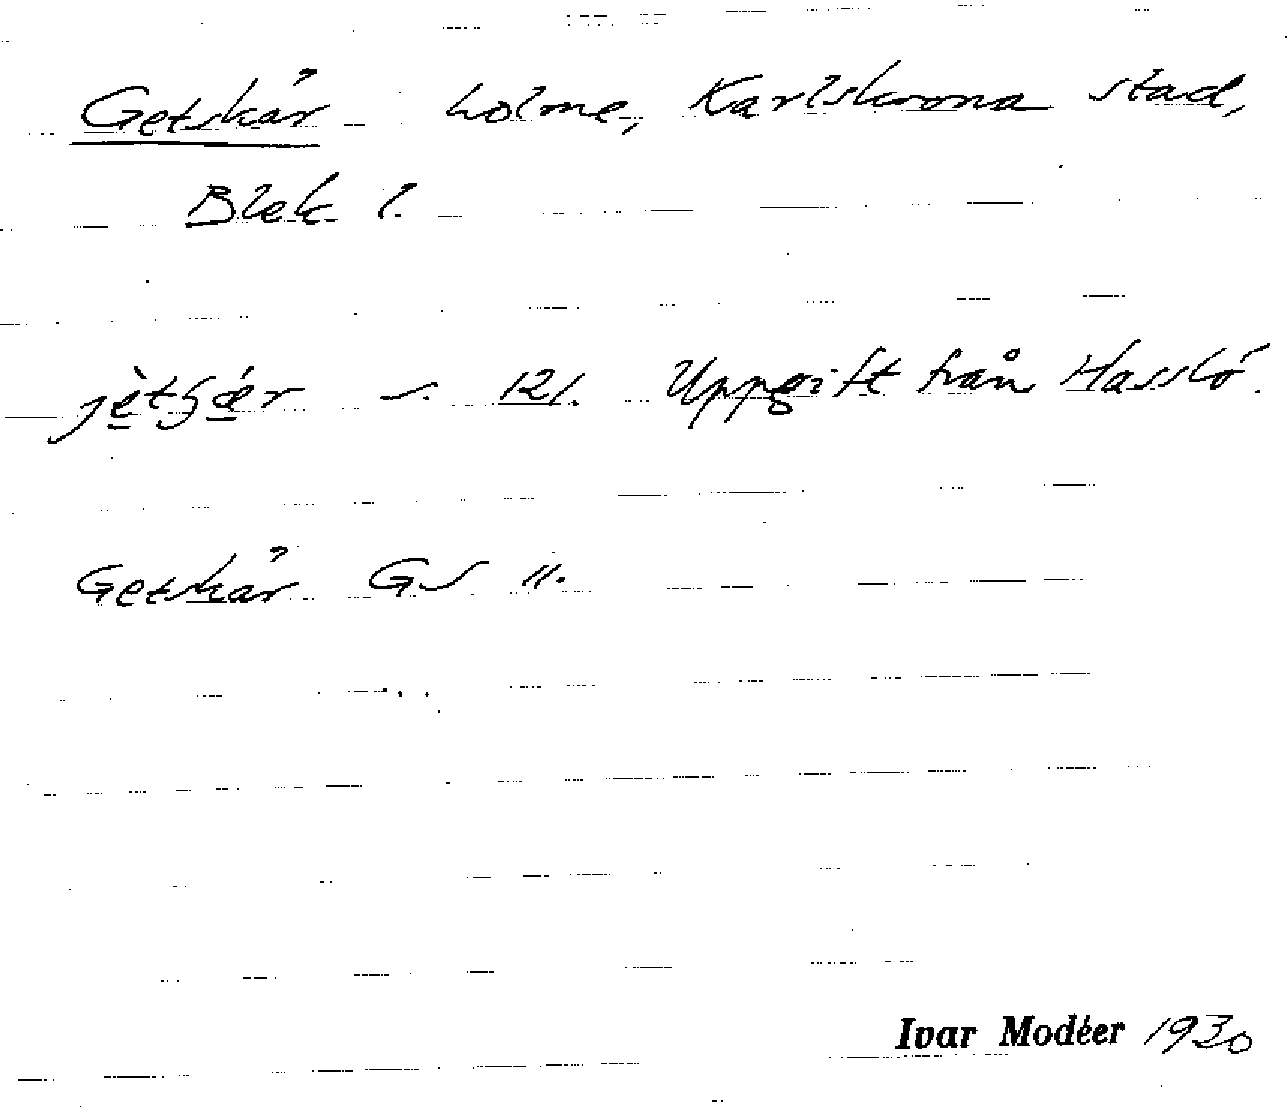 Getskär holme, Karlskrona stad,
Blek l.
121. Uppgift från Hasslö.
Getskär GS 11.
Ivar Modéer 1930